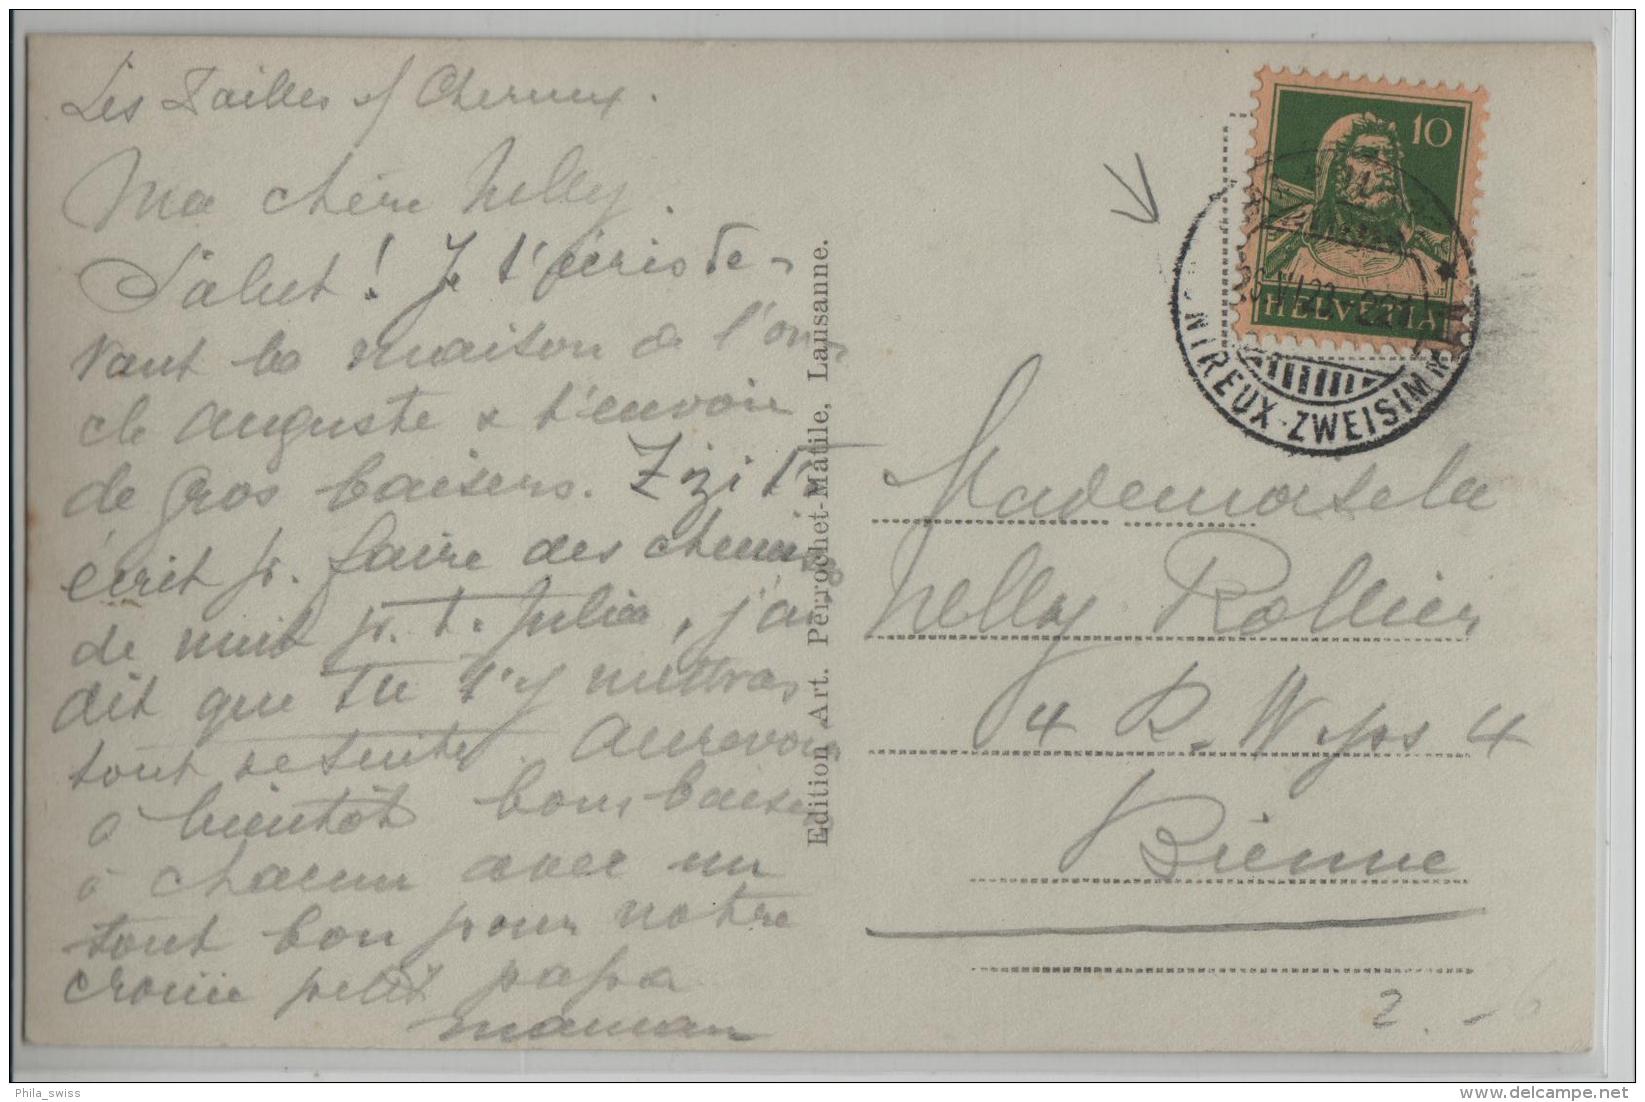 Les Tailles s/ Chernex.
Ma chère Nelly.
Salut! Je t'écris de-
vant la maison de l'on-
cle Auguste & t'envoie
de gros baisers. Zizi t'a
écrit p. faire des chemises
de nuit p. t. Julia, j'ai
dit que tu t'y mettras
tout de suite. Aurevoir
à bientôt bons baisers
à chacun avec un
tout bon pour notre
petit papa
maman
Edition Art. Perrochet-Matile, Lausanne.
10
HELVETIA
MONTREUX-ZWEISIMMEN
Mademoisele
Nelly Rollier
4 R. Wyss 4
Bienne
2.-
Phila_swiss
delcampe.net